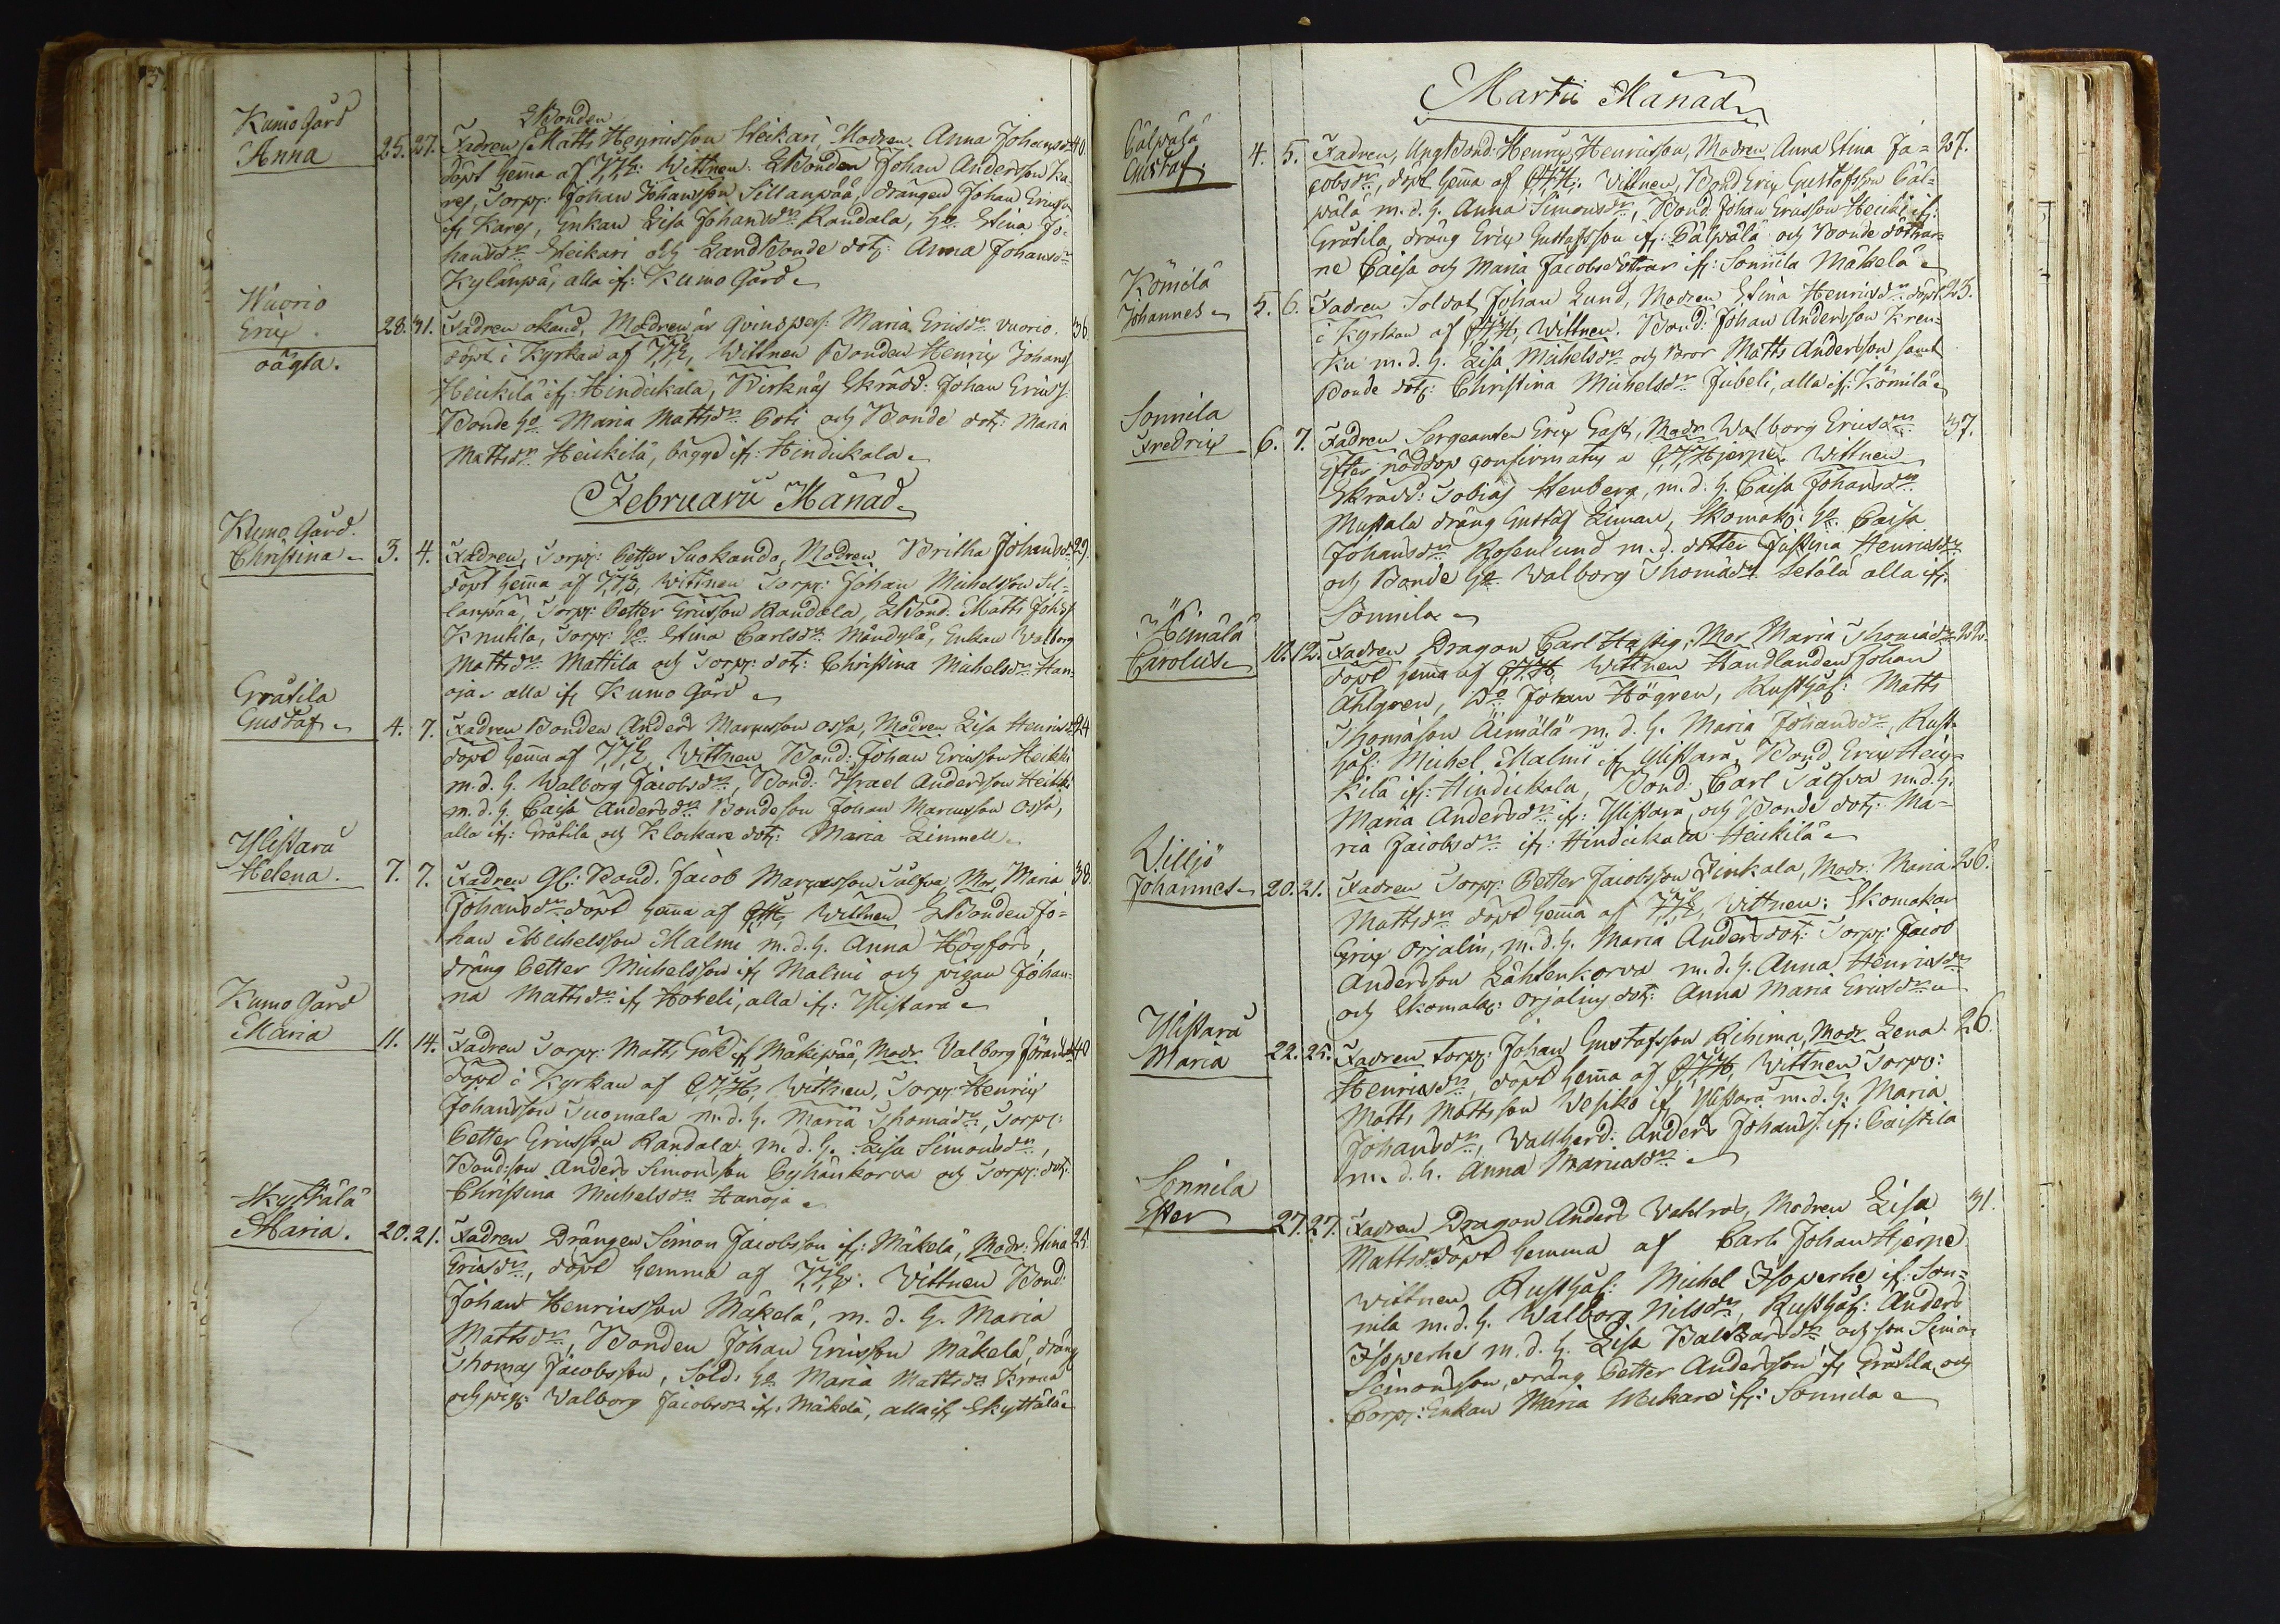 Kumo Gård
Anna
25. 27.
LBonden
Fadren Matts Henricsson Heikari, Modren. Anna Johansdr 40
döpt hema af Wittnen: LBonden Johan Andersson Ka-
rej, Torpr: Johan Johansson Sillanpää, drängen Johan Ericsson
ifr Karej, Enkan Lisa Johansdr Randala, ho Stina Jo-
hansdr Heikari och LandBonde dotr: Anna Johansdr
Kylänpä, alla ifr: Kumo Gård
Wuorio
Eric.
oägta.
28. 31.
Fadren okänd, Modren är Qvinspers: Maria Ericsdr Vuorio. 36
döpt i Kyrkan af Wittnen Bonden Henric Johans
Heickilä ifr: Hindickala, Skrädd: Johan Erics
Bonde ho Maria Mattsdr och Bonde dotr: Maria
Mattsdr Heickilä, bägge ifr: Hindickala
Februarii Månad
Kumo Gård.
Christina
3. 4.
Fadren, Torpr: Petter Suokando, Modren Britha Johansdr 29
döpt hema af Wittnen Torpr: Johan Michelsson Sil-
lanpää, Torpr: Petter Ericsson Randala, LBond. Matts Johs
Knutila, Torpr: ho Stina Carlsdr Mändylä, Enkan Walborg
Mattsdr Mattila och Torpr: dotr: Christina Michelsdr Han-
oja alla ifr Kumo Gård
Gråtila
Gustaf
4. 7.
Fadren Bonden Anders Marcusson Ossa, Modren Lisa Henricsdr 24
döpt hema af Wittnen Bond: Johan Ericsson Heickki
m. d. h. Walborg Jacobsdr, Bond: Israel Andersson Heickki
m. d. h. Caisa Andersdr Bondeson Johan Marcusson Ossa,
alla ifr: Gråtila och Klockare dotr: Maria Limnell
Ylistaru
Helena.
7. 7.
Fadren Gl: Bond. Jacob Marcusson Sälfva, Mor, Maria 38
Johansdr döpt hema af Wittnen LBonden Jo-
han Michelsson Malmi m. d. h. Anna Högfors,
dräng Petter Michelsson ifr Malmi och pigan Johan-
na Mattsdr ifr Hoveli, alla ifr: Ylistaru
Kumo Gård
Maria
11. 14.
Fadren Torpr: Matts Gök ifr Mäkipää, Modr. Valborg Göransdr 40
döpt i Kyrkan af Wittnen, Torpr: Henric
Johansson Tuomala m. d. h. Maria Thomædr, Torpr:
Petter Ericsson Randala m. d. h. Lisa Simonsdr,
Bondson Anders Simonsson Pyhänkorva och Torpr: dotr:
Christina Michelsdr Hanoja
Skyttälä
Maria.
20. 21.
Fadren Drängen Simon Jacobsson ifr: Mäkelä, Modr: Stina 24.
Ericsdr, döpt hemma af Wittnen Bond:
Johan Henricsson Mäkelä, m. d. h. Maria
Mattsdr, Bonden Johan Ericsson Mäkelä, dräng
Thomas Jacobsson, Sold: ho Maria Mattsdr Krona
och pig: Walborg Jacobsdr ifr: Mäkelä, alla ifr Skyttälä
Martii Månad
Cälpälä
Gustaf
4. 5.
Fadren, UngBond: Henric Henricsson, Modren Anna Stina Ja- 27.
cobsdr, döpt hema af Wittnen, Bond Eric Gustafsson Cäl-
pälä m. d. h. Anna Simonsdr, Bond. Johan Ericsson Heicki ifr:
Gråtila, dräng Eric Gustafsson ifr: Cälpälä och Bonde döttrar-
ne Caisa och Maria Jacobsdöttrar ifr: Sonnila Mäkelä
Kömilä
Johannes
5. 6.
Fadren Soldat Johan Lund, Modren Stina Henricsdr döpt 25.
i Kyrkan af Wittnen. Bond: Johan Andersson Kren-
ku m. d. h. Lisa Michelsdr och Bror Matts Andersson samt
Bonde dotr: Christina Michelsdr Jubeli, alla ifr: Kömilä
Sonnila
Fredric
6. 7.
Fadren Sergeanten Eric Gast, Modr Walborg Ericsdr 37.
efter nöddop confirmatus a Hjerpe, Wittnen
Skrädd: Tobias Stenberg, m. d. h. Caisa Johansdr
Mustala dräng Gustaf Liman, Skomak: ho. Caisa
Johansdr Rosenlund m. d. dotter Justina Henricsdr
och Bonde ho Walborg Thomædr Setälä alla ifr:
Sonnila
Äimälä
Carolus
10. 12.
Fadren Dragon Carl Hastig, Mor Maria Thomædr 22.
döpt hema af Wittnen Handlanden Johan
Ahlgren, Do Johan Högren, Rusthåf: Matts
Thomäson Äimälä m. d. h. Maria Johansdr, Rust-
håf: Michel Malmi ifr Ylistaru, Bond Eric Heic-
kilä ifr: Hindickala, Bond: Carl Sälfva m. d. h.
Maria Andersdr ifr: Ylistaru, och Bonde dotr: Ma-
ria Jacobsdr ifr: Hindickala Heickilä
Villjo
Johannes
20. 21.
Fadren Torpr: Petter Jacobsson Finkala, Modr: Maria 26.
Mattsdr döpt hema af Wittnen: Skomakar
Eric Orjalin, m. d. h. Maria Andersdotr: Torpr: Jacob
Andersson Lähtenkorva m. d. h. Anna Henricsdr
och Skomak: Orjalins dotr: Anna Maria Ericsdr
Ylistaru
Maria
22. 25.
Fadren Torpr: Johan Gustafsson Rihima, Modr Lena 26.
Henricsdr, döpt hema af Wittnen Torpr:
Matts Mattsson Wesiko ifr Ylistaru m. d. h. Maria
Johansdr, Vallherd: Anders Johans: ifr: Caistila
m. d. h. Anna Maricasdr
Sonnila
Ester
27. 27.
Fadren Dragon Anders Vahlros, Modren Lisa 31.
Mattsdr döpt hemma af Carl Johan Hjerpe
Wittnen Rusthåf: Michel Isoperhe ifr: Son-
nila m. d. h. Walborg Nilsdr, Rusthåf: Anders
Isoperhe m. d. h. Lisa Baltzarsdr och son Simon
Simonsson, dräng Petter Andersson ifr Gråtila och
Corpr: Enkan Maria Weikare ifr: Sonnila